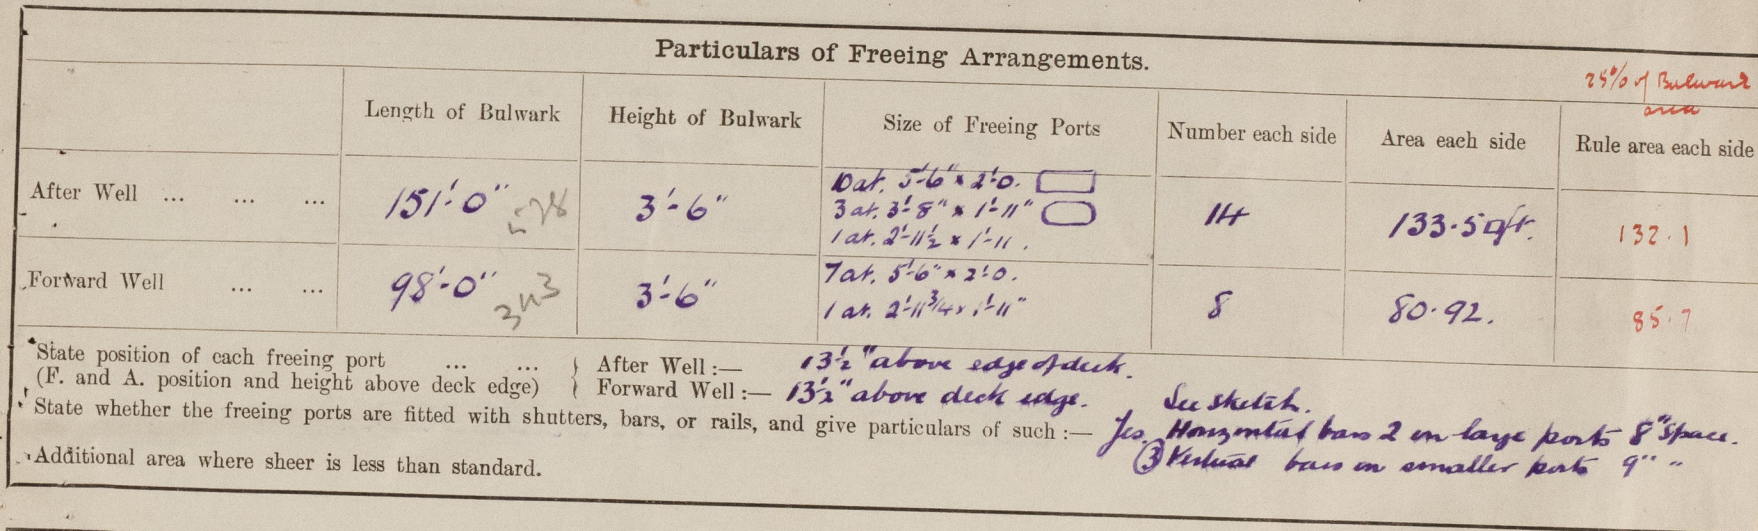 Particulars of Freeing Arrangements.
25% of Bulwark
area
Length of Bulwark Height of Bulwark Size of Freeing Ports Number each side Area each side Rule area each side
After Well ... ... ... 151'-0" 3'-6" 10 at. 5'-6" x 2'-0. 14 133.5 qft. 132.1
3 at. 3'-8" x 1'-11"
1 at. 2'-11½ x 1'-11.
Forward Well ... ... 98'-0" 343 3'-6" 7 at. 5'-6" x 2'-0. 8 80.92. 85.7
1 at. 2'-11¾ x 1'-11"
State position of each freeing port ... ... } After Well :— 13½" above edge of deck.
(F. and A. position and height above deck edge) } Forward Well :— 13½" above deck edge. See sketch.
State whether the freeing ports are fitted with shutters, bars, or rails, and give particulars of such :— Yes. Horizontal bars 2 in large ports 8" space.
③ Vertical bars in smaller ports 9" "
Additional area where sheer is less than standard.